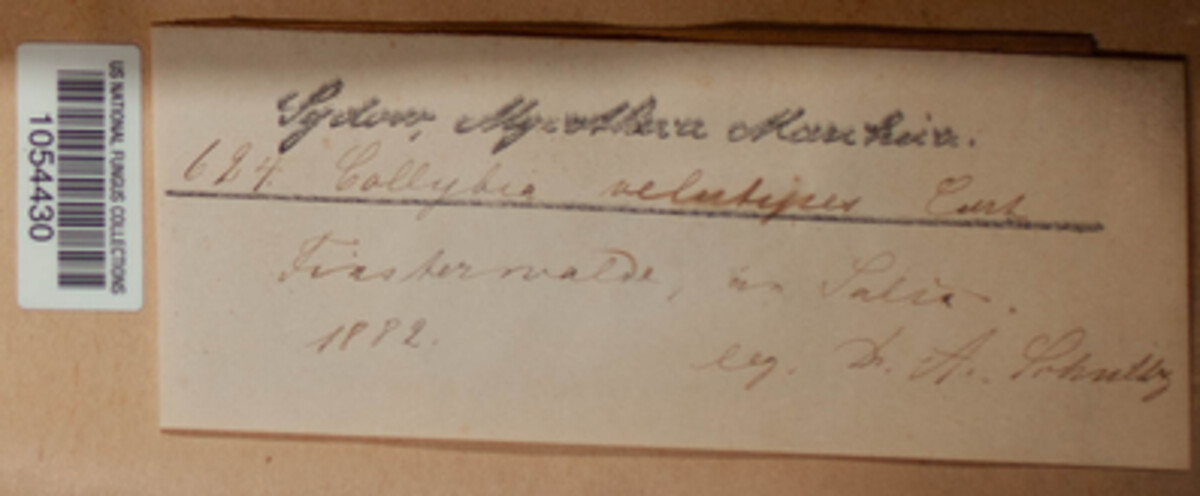 US NATIONAL FUNGUS COLLECTIONS
1054430
Sydow, Mycotheca Marchica.
624. Collybia velutipes Curt
Finsterwalde, an Salix.
1882.
leg. Dr. A.